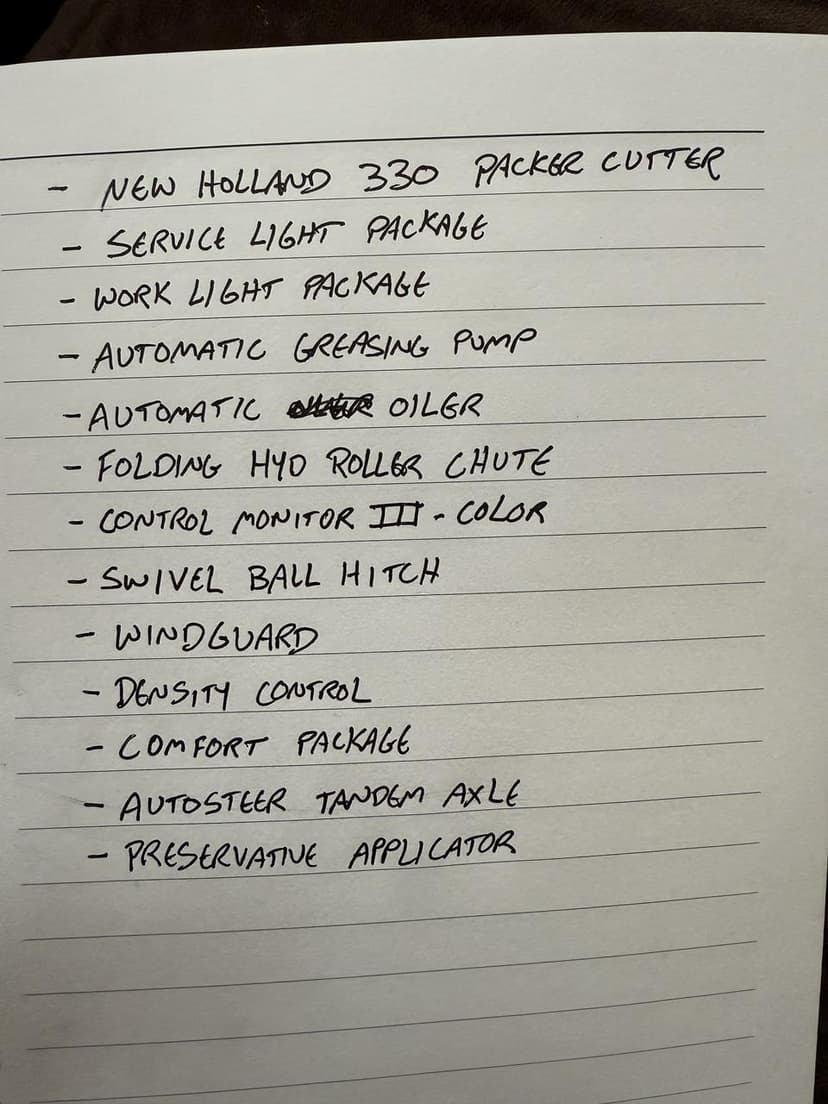 - NEW HOLLAND 330 PACKER CUTTER
- SERVICE LIGHT PACKAGE
- WORK LIGHT PACKAGE
- AUTOMATIC GREASING PUMP
- AUTOMATIC OILER
- FOLDING HYD ROLLER CHUTE
- CONTROL MONITOR III - COLOR
- SWIVEL BALL HITCH
- WINDGUARD
- DENSITY CONTROL
- COMFORT PACKAGE
- AUTOSTEER TANDEM AXLE
- PRESERVATIVE APPLICATOR